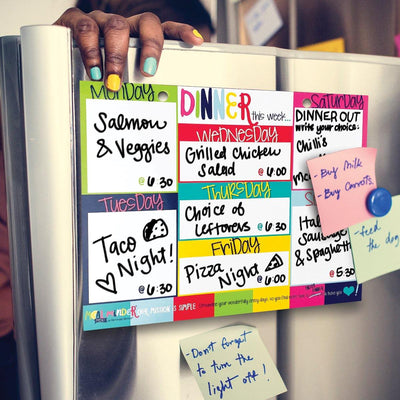 MONDAY
Salmon
& Veggies
@ 6:30
DINNER this week...
WEDNESDAY
Grilled Chicken
Salad @ 6:00
THURSDAY
Choice of
Leftovers @ 6:30
FRIDAY
Pizza
Night @ 6:00
SATURDAY
DINNER OUT
write your choice:
Chilli's
TUESDAY
Taco
Night!
@ 6:30
Sausage
& Spaghetti
5:30
- Buy Milk
- Buy Carrots.
- feed the
dog
- Don't forget
to turn the
light off!
MISSION SIMPLE: